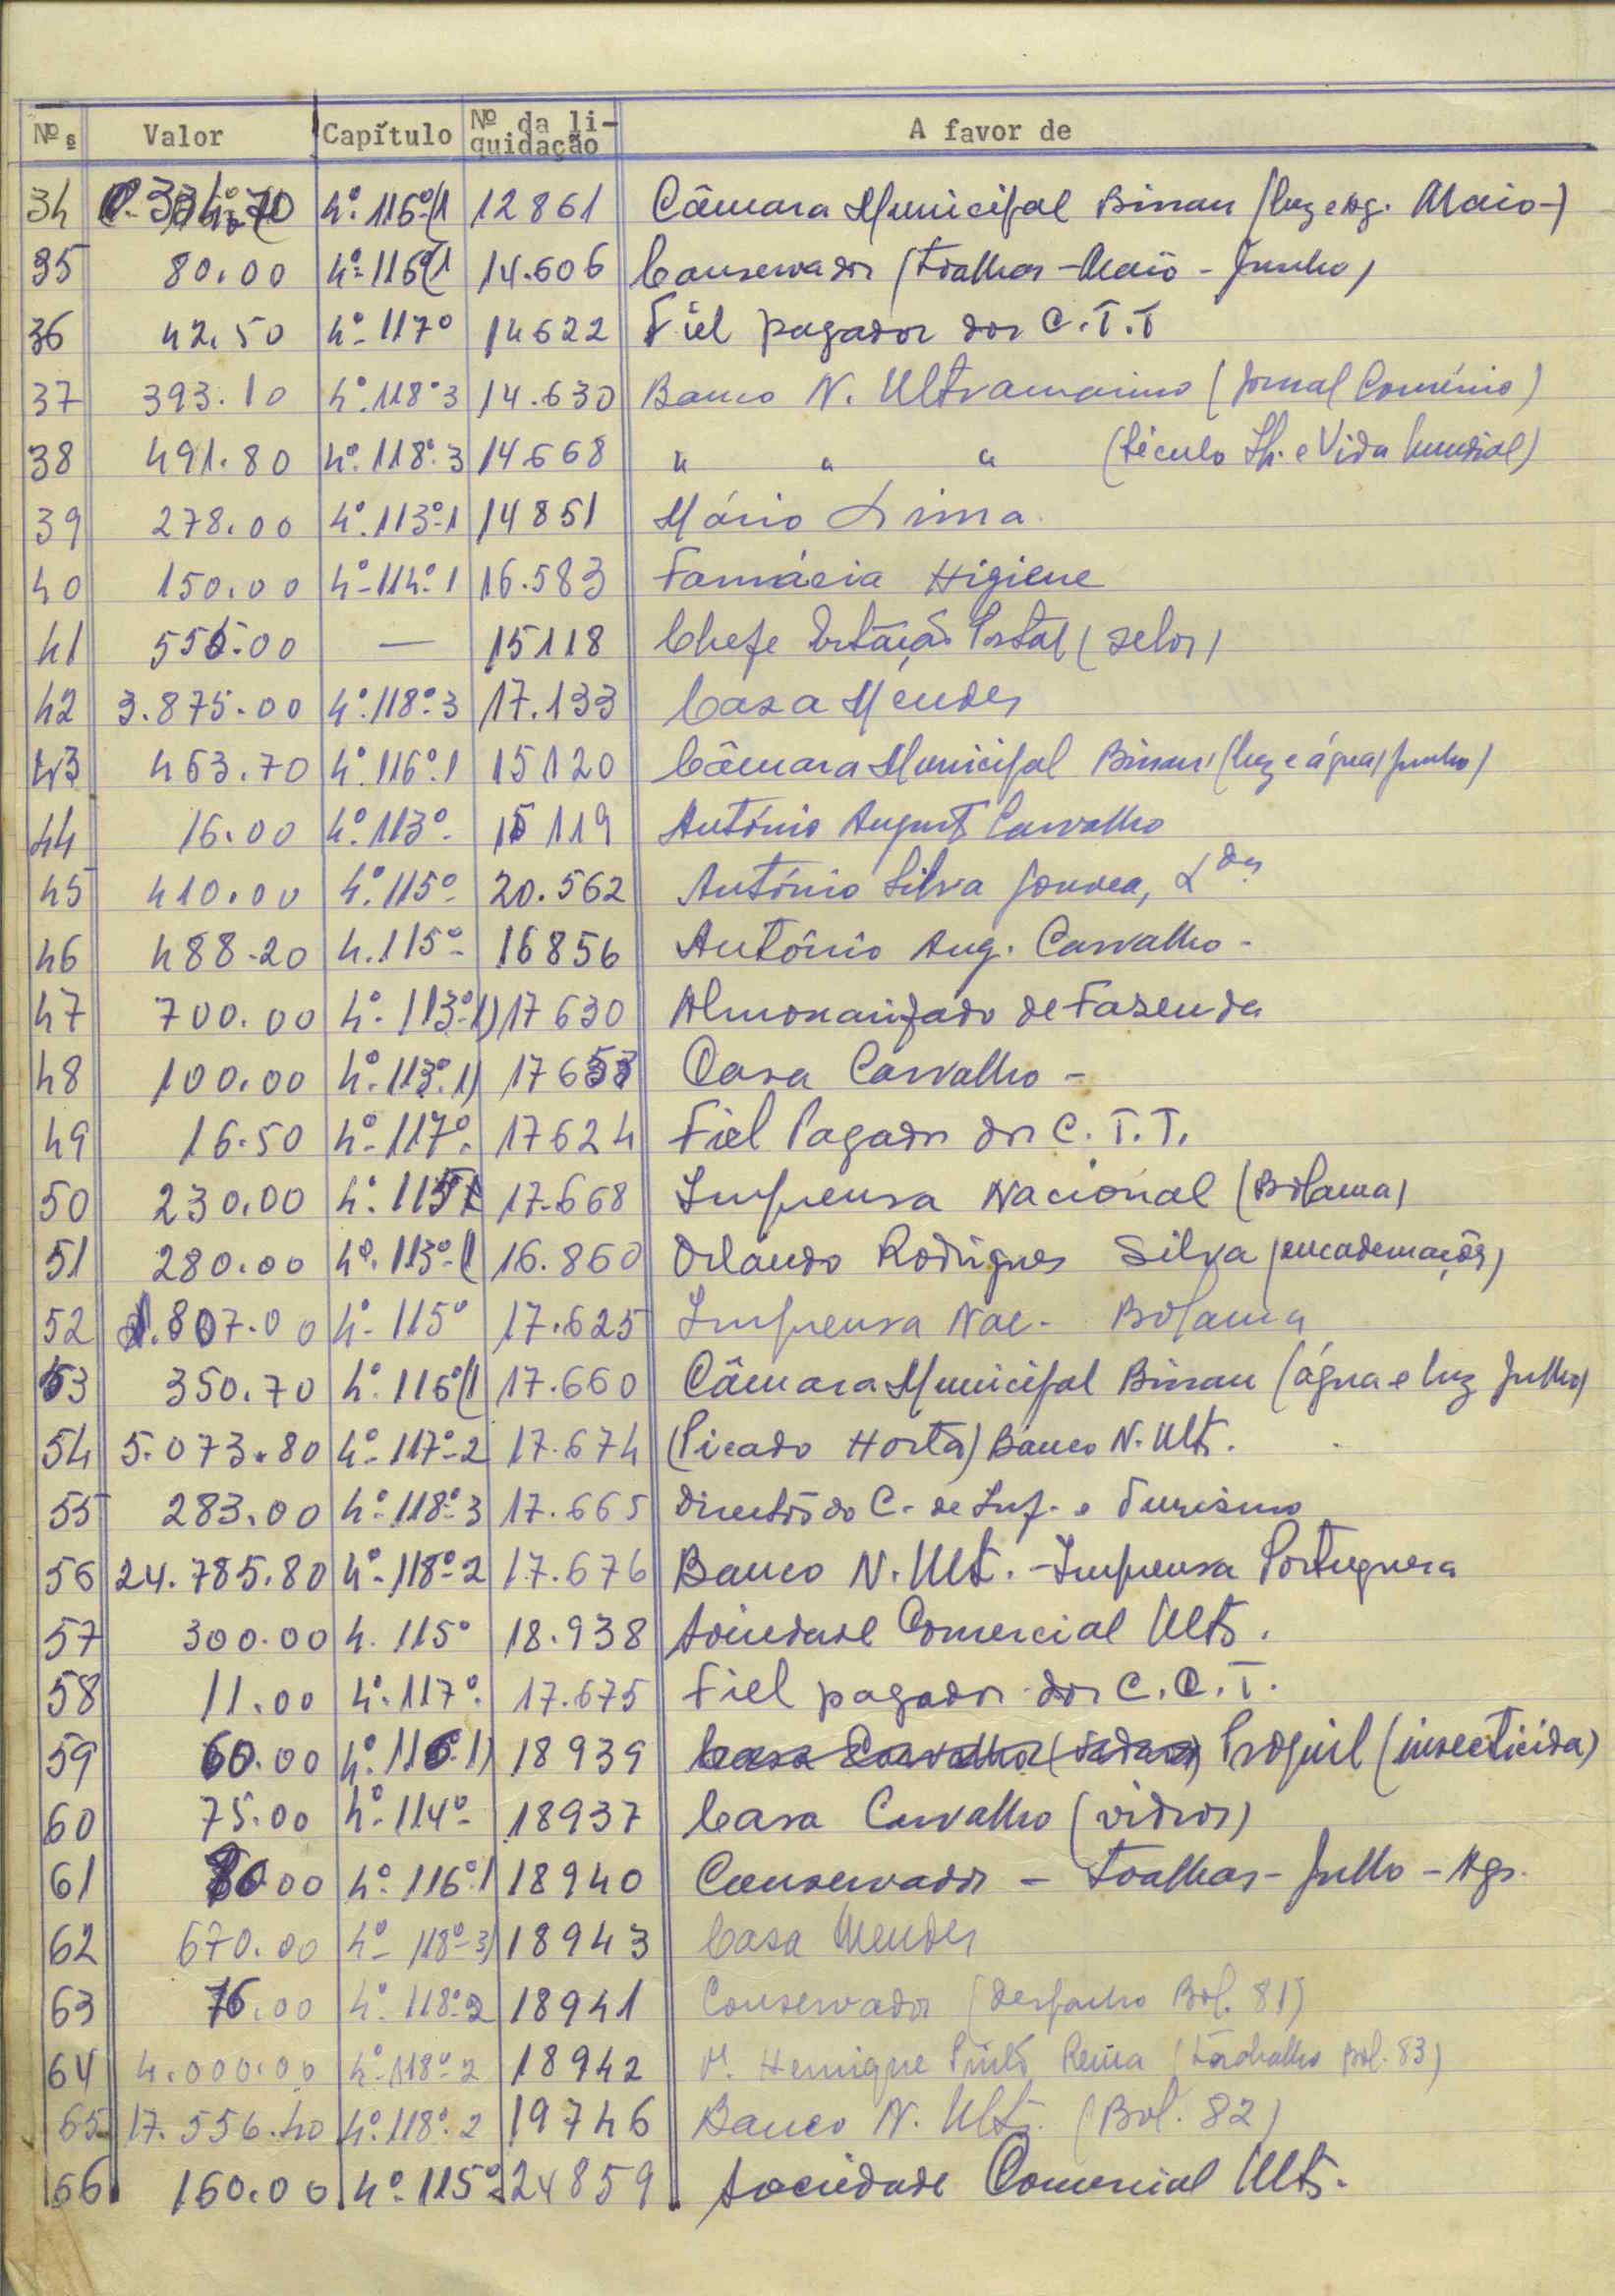 Nºs Valor Capítulo Nº da li-quidação A favor de
34 4º. 116º(1 12861 Câmara Municipal Bissau (luz e ág. Maio-)
35 80.00 4º. 116º(1 14.606 Conservador (toalhas - Maio - Junho)
36 42.50 4º. 117º 14622 Fiel pagador dos C.T.T
37 393.10 4º. 118º.3 14.630 Banco N. Ultramarino (Jornal Comércio)
38 491.80 4º. 118º.3 14.668 " " " (Século Il. e Vida Mundial)
39 278.00 4º. 113º.1 14851 Mário Lima.
40 150.00 4º. 114º.1 16.583 Farmácia Higiene
41 — 15118 Chefe Estação Postal (selos)
42 3.875.00 4º. 118º.3 17.133 Casa Mendes
43 463.70 4º. 116º.1 15120 Câmara Municipal Bissau (luz e água, Junho)
44 16.00 4º. 113º. 15119 António Augusto Carvalho
45 410.00 4º. 115º 20.562 António Silva Gouvea, Lda.
46 488.20 4. 115º- 16856 António Aug. Carvalho -
47 700.00 4º. 113º.1) 17630 Almoxarifado de Fazenda
48 100.00 4º. 113º.1) 17653 Casa Carvalho -
49 16.50 4º. 117º. 17624 Fiel Pagador dos C.T.T.
50 230.00 4º. 17.668 Imprensa Nacional (Bolama)
51 280.00 4º. 113º-(1 16.860 Orlando Rodrigues Silva (encadernações)
52 1.807.00 4º. 115º 17.625 Imprensa Nac. Bolama
53 350.70 4º. 116º(1 17.660 Câmara Municipal Bissau (água e luz Julho)
54 5.073.80 4º. 117º-2 17.674 (Picado Horta) Banco N. Ult.
55 283.00 4º. 118º-3 17.665 Director do C. de Inf. e Turismo
56 24.785.80 4º. 118º-2 17.676 Banco N. Ult. - Imprensa Portuguesa
57 300.00 4. 115º 18.938 Sociedade Comercial Ult.
58 11.00 4º. 117º. 17.675 Fiel pagador dos C.C.T.
59 60.00 4º. 116º.1) 18939 Casa Carvalho (vidros) Proquil (insecticida)
60 75.00 4º. 114º- 18937 Casa Carvalho (vidros)
61 80.00 4º. 116º.1 18940 Conservador - toalhas - Julho - Ag.
62 670.00 4º- 118º-3) 18943 Casa Mendes
63 76.00 4º. 118º.2 18941 Conservador (despacho Bol. 81)
64 4.000.00 4º. 118º-2 18942 Henrique Pinto Rema (trabalho Bol. 83)
65 17.556.40 4º. 118º.2 19746 Banco N. Ult. (Bol. 82)
66 160.00 4º. 115º 24859 Sociedade Comercial Ult.